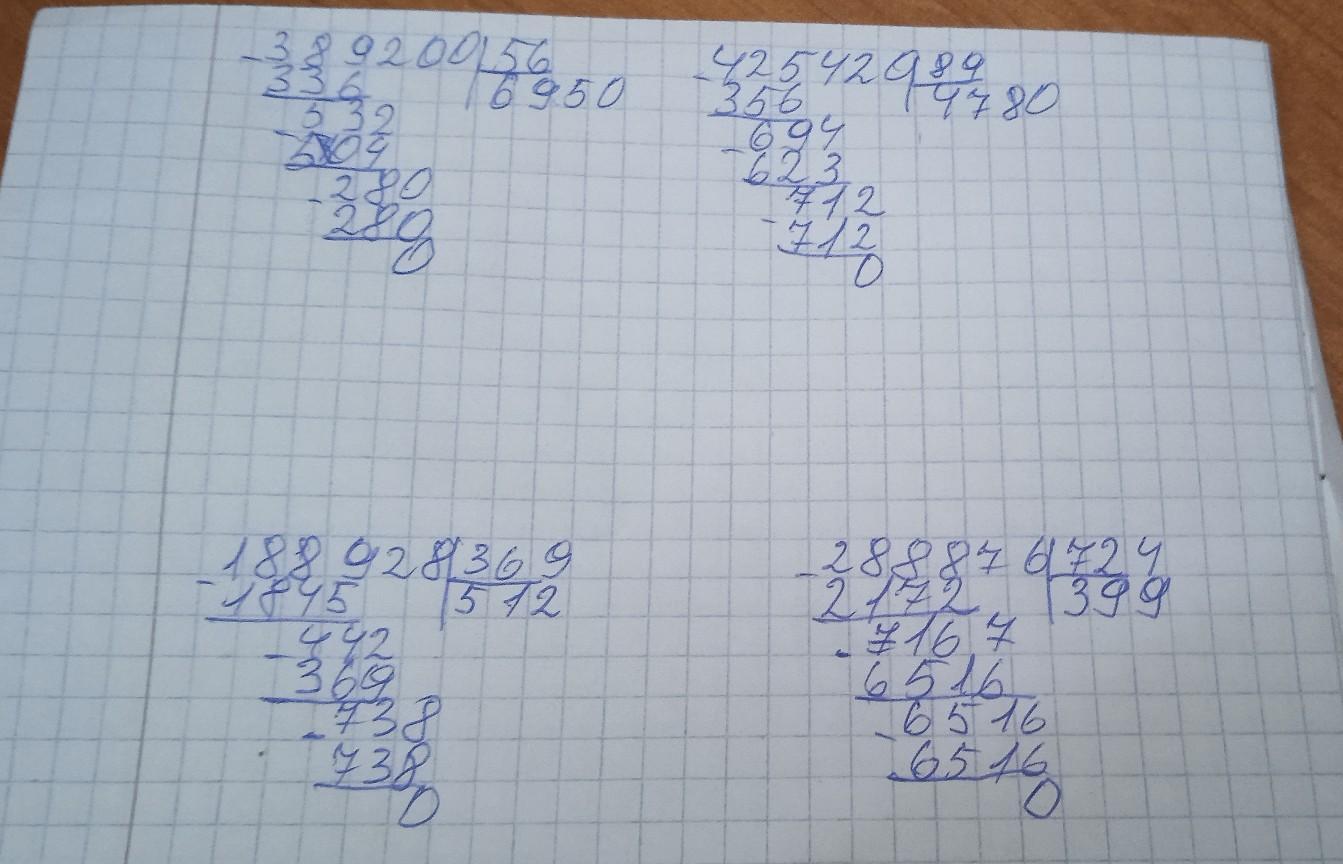 -389200|56
336 6950
-532
504
-280
280
0
-425420|89
356 4780
-694
623
-712
712
0
-188928|369
-1845 512
-442
369
-738
738
0
-288876|724
2172 399
-7167
6516
-6516
6516
0